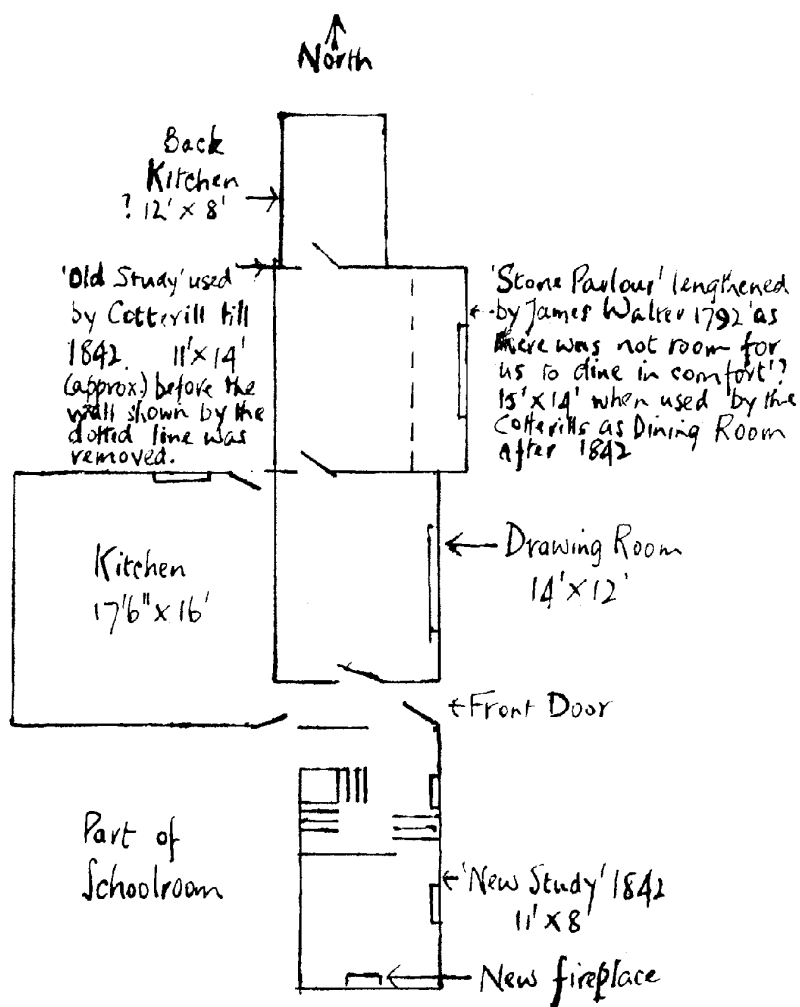 North
Back
Kitchen
? 12' x 8'
'Old Study' used
by Cotterill till
1842. 11' x 14'
(approx.) before the
wall shown by the
dotted line was
removed.
'Stone Parlour' lengthened
by James Walter 1792 'as
there was not room for
us to dine in comfort'?
15' x 14' when used by the
Cotterills as Dining Room
after 1842
Kitchen
17'6" x 16'
Drawing Room
14' x 12'
Front Door
Part of
Schoolroom
'New Study' 1842
11' x 8'
New fireplace